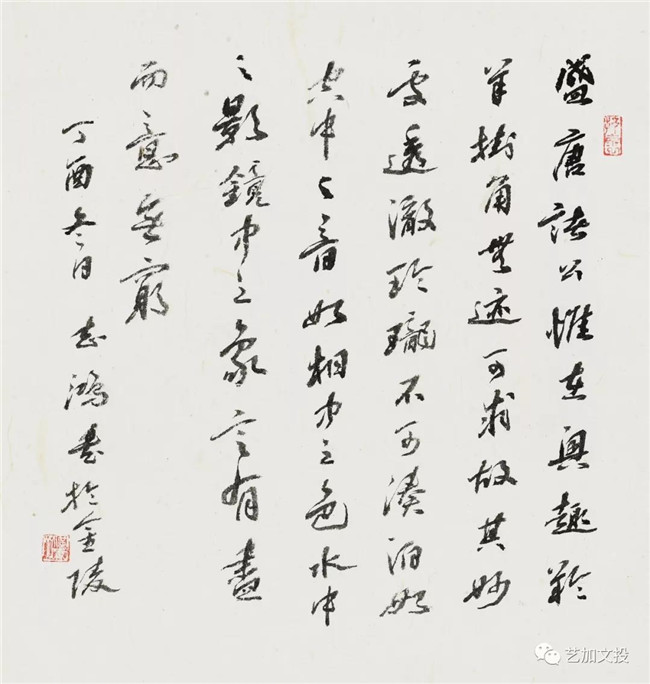 盛唐諸公惟在興趣羚
羊掛角無迹可求故其妙
處透澈玲瓏不可湊泊如
空中之音如相中之色水中
之影鏡中之象言有盡
而意無窮
丁酉冬日 志鴻書於金陵
艺加文投